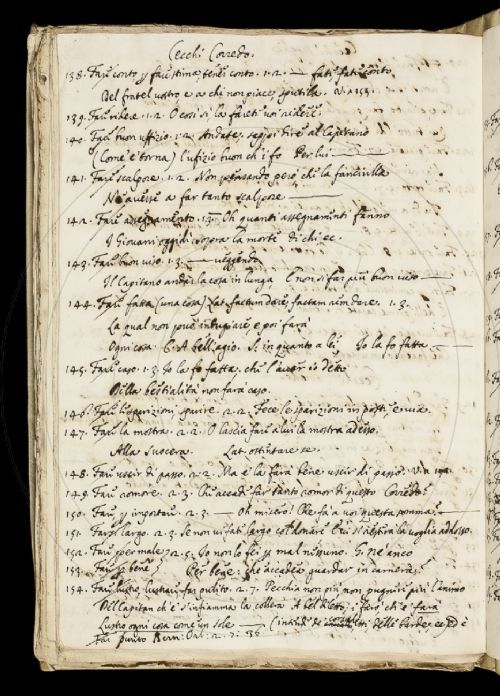 Cecchi Corredo.
138. Far conto, far stima, tener conto. 1. 2. — fate, fate conto
Del fratel vostro e a chi non piace, sputila. V. 153.
139. Far ridere. 1. 2. O così si fa farete voi ridere.
140. Far buon uffizio. 1. 2. Andate, seppi dire al Capitano
(Come e' torna) l'ufizio buon ch'i fo Per lui —
141. Far scalpore. 1. 2. Non pensando però che la fanciulla
N' avesse a far tanto scalpore —
142. Fare assegnamento. 1. 3. — Oh quanti assegnamenti fanno
I Giovani oggidì sopra la morte di chi ec.
143. Far buon viso. 1. 3. — veggendo
Il Capitano andar la cosa in lunga E non si far più buon viso —
144. Far fatta (una cosa) Lat. factum dare, factam reddere. 1. 3.
La qual non può indugiare, e poi farà
Ogni cosa a bell'agio. Si in quanto a lei Io la fo fatta —
145. Far caso. 1. 3. Io la fo fatta, che l'aver io detto
Della bestialità non farà caso.
146. Far le sparizioni, sparire. 2. 2. Fece le sparizioni in poste, e via.
147. Far la mostra. 2. 2. O lascia far a lui la mostra adesso
Alla suocera. Lat. ostentare se.
148. Far uscir di passo. 2. 2. Ma e' la farà bene uscir di passo. V.
149. Far romore. 2. 3. Che accade far tanto romor di questo Corredo?
150. Far, importare. 2. 3. — Oh misero! Che fa a voi questa somma? —
151. Farsi largo. 2. 3. Se non vi fate largo col donare E' vi
152. Far per male. 2. 5. Io non lo fei per mal nissuno. G. Nè anco
153. Far per bene Per bene: che accadea guardar in camera?
154. Far lustro, lustrar, far pulito. 2. 7. Perchè non più non pugnere più l'animo
Del Capitan ch'e' s'infiamma la collera: farò ch'e' farà
Lustro ogni cosa come un sole —
Far punto Bern: Orl: 2. 7: 56